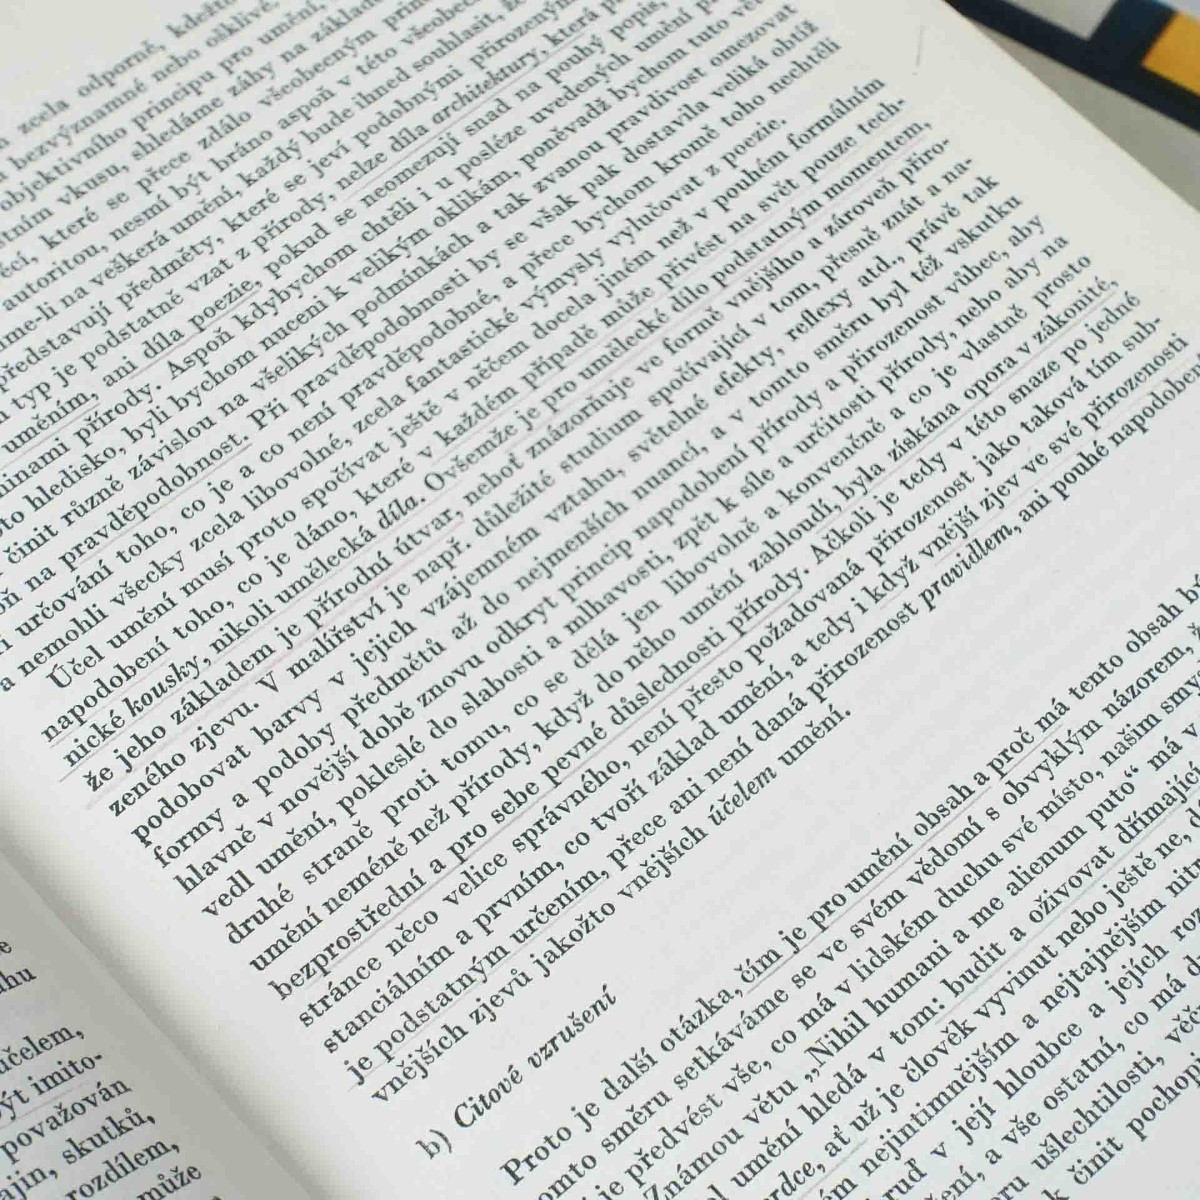 zcela odporně,
bezvýznamné nebo ošklivé,
objektivního principu pro umění,
vkusu, shledáme záhy na základě
které se přece zdálo všeobecným
autoritou, nesmí být bráno aspoň v této všeobec-
me-li na veškerá umění, každý bude ihned souhlasit, že
představují předměty, které se jeví podobnými přirozeným
typ je podstatně vzat z přírody, nelze díla architektury, která
uměním, ani díla poezie, pokud se neomezují snad na pouhý popis,
přírody. Aspoň kdybychom chtěli i u posléze uvedených umění
to hledisko, byli bychom nuceni k velikým oklikám, poněvadž bychom tuto
činit různě závislou na všelikých podmínkách a tak zvanou pravdivost omezovat
na pravděpodobnost. Při pravděpodobnosti by se však pak dostavila veliká obtíž
určování toho, co je a co není pravděpodobné, a přece bychom kromě toho nechtěli
a nemohli všecky zcela libovolné, zcela fantastické výmysly vylučovat z poezie.
Účel umění musí proto spočívat ještě v něčem docela jiném než v pouhém formálním
napodobení toho, co je dáno, které v každém případě může přivést na svět pouze tech-
nické kousky, nikoli umělecká díla. Ovšemže je pro umělecké dílo podstatným momentem,
že jeho základem je přírodní útvar, neboť znázorňuje ve formě vnějšího a zároveň přiro-
zeného zjevu. V malířství je např. důležité studium spočívající v tom, přesně znát a na-
podobovat barvy v jejich vzájemném vztahu, světelné efekty, reflexy atd., právě tak
formy a podoby předmětů až do nejmenších nuancí, a v tomto směru byl též vskutku
hlavně v novější době znovu odkryt princip napodobení přírody a přirozenost vůbec, aby
vedl umění, pokleslé do slabosti a mlhavosti, zpět k síle a určitosti přírody, nebo aby na
druhé straně proti tomu, co se dělá jen libovolně a konvenčně a co je vlastně prosto
umění neméně než přírody, když do něho umění zabloudí, byla získána opora v zákonité,
bezprostřední a pro sebe pevné důslednosti přírody. Ačkoli je tedy v této snaze po jedné
stránce něco velice správného, není přesto požadovaná přirozenost jako taková tím sub-
stanciálním a prvním, co tvoří základ umění, a tedy i když vnější zjev ve své přirozenosti
je podstatným určením, přece ani není daná přirozenost pravidlem, ani pouhé napodobení
vnějších zjevů jakožto vnějších účelem umění.
b) Citové vzrušení
Proto je další otázka, čím je pro umění obsah a proč má tento obsah
tomto směru setkáváme se ve svém vědomí s obvyklým názorem,
je předvést vše, co má v lidském duchu své místo, našim
Známou větu „Nihil humani a me alienum puto“ má v
umění hledá v tom: budit a oživovat dřímající
srdce, ať už je člověk vyvinut nebo ještě ne,
nejintimnějším a nejtajnějším
v její hloubce a jejich
a vše ostatní, co má
ušlechtilosti,
činit
účelem,
být imito-
považován
skutků,
rozdílem,
může